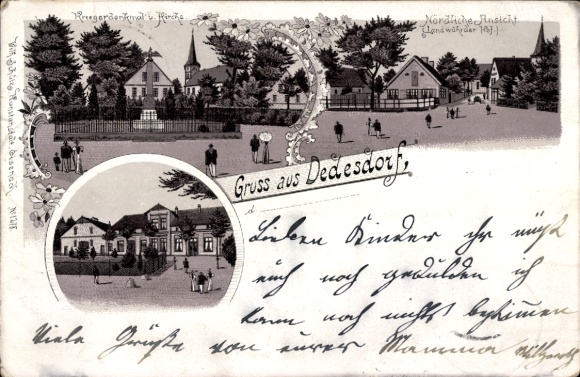 Kriegerdenkmal u. Kirche.
Nördliche Ansicht
(Landwührder Hof.)
Gruss aus Dedesdorf,
d
Lieben Kinder ihr müßt
euch noch gedulden ich
kann noch nichts bestimen
Viele Grüße von eurer Mamma